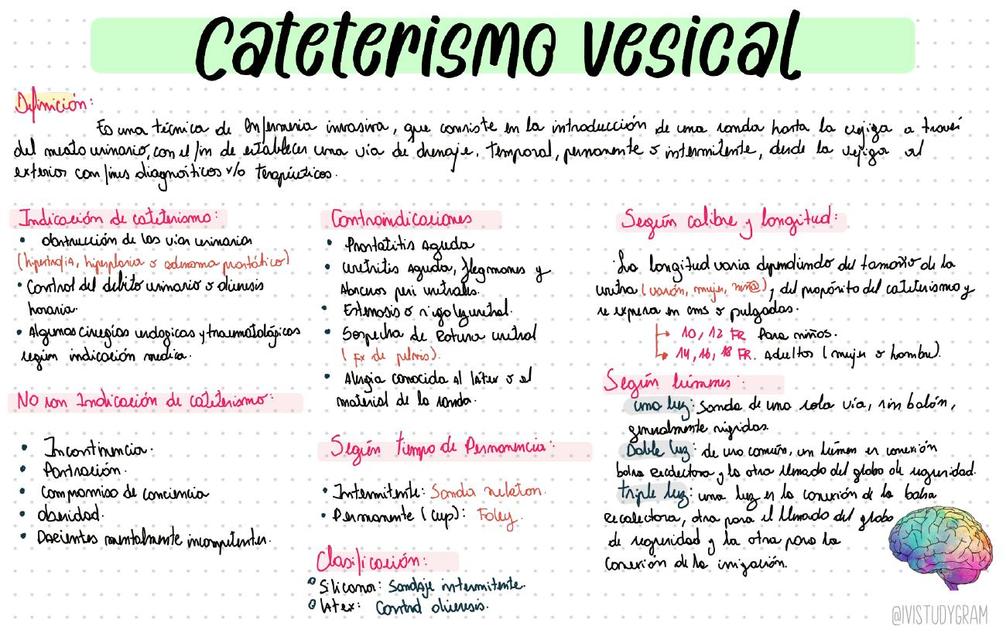 Cateterismo vesical
Definición:
Es una técnica de Enfermeria invasiva, que consiste en la introducción de una sonda hasta la vejiga a través
del meato urinario, con el fin de establecer una vía de drenaje, temporal, permanente o intermitente, desde la vejiga al
exterior con fines diagnósticos y/o terapéuticos.
Indicación de cateterismo:
• obstrucción de las vías urinarias
(hipertrofia, hiperplasia o edenoma prostático)
• Control del debito urinario o diuresis
horaria.
• Algunas cirugías urologicas y traumatológicas
según indicación medica.
No son Indicación de cateterismo:
• Incontinencia.
• Postración.
• Compromiso de conciencia
• obesidad.
• Pacientes mentalmente incompetentes.
Contraindicaciones
• Prostatitis Aguda
• uretritis aguda, flegmones y
Abscesos peri uretrales.
• Estenosis o rigidez uretral.
• Sospecha de Rotura uretral
(fx de pelvis).
• Alergia conocida al látex o al
material de la sonda.
Según tiempo de Permanencia:
• Intermitente: Sonda nelaton.
• Permanente (cup): Foley.
Clasificación:
Silicona: Sondaje intermitente.
latex: Control diuresis.
Según calibre y longitud:
La longitud varia dependiendo del tamaño de la
uretra (varón, mujer, niñ@), y del propósito del cateterismo y
se expresa en cms o pulgadas.
10, 12 FR Para niños.
14, 16, 18 FR. Adultos (mujer o hombre).
Según lúmenes:
una luz: Sonda de una sola vía, sin balón,
generalmente rigidas.
Doble luz: de uso común, un lúmen es conexión
bolsa recolectora y la otra llenado del globo de seguridad.
triple luz: una luz es la conexión de la bolsa
recolectora, otra para el llenado del globo
de seguridad y la otra para la
conexión de la irrigación.
@IVISTUDYGRAM